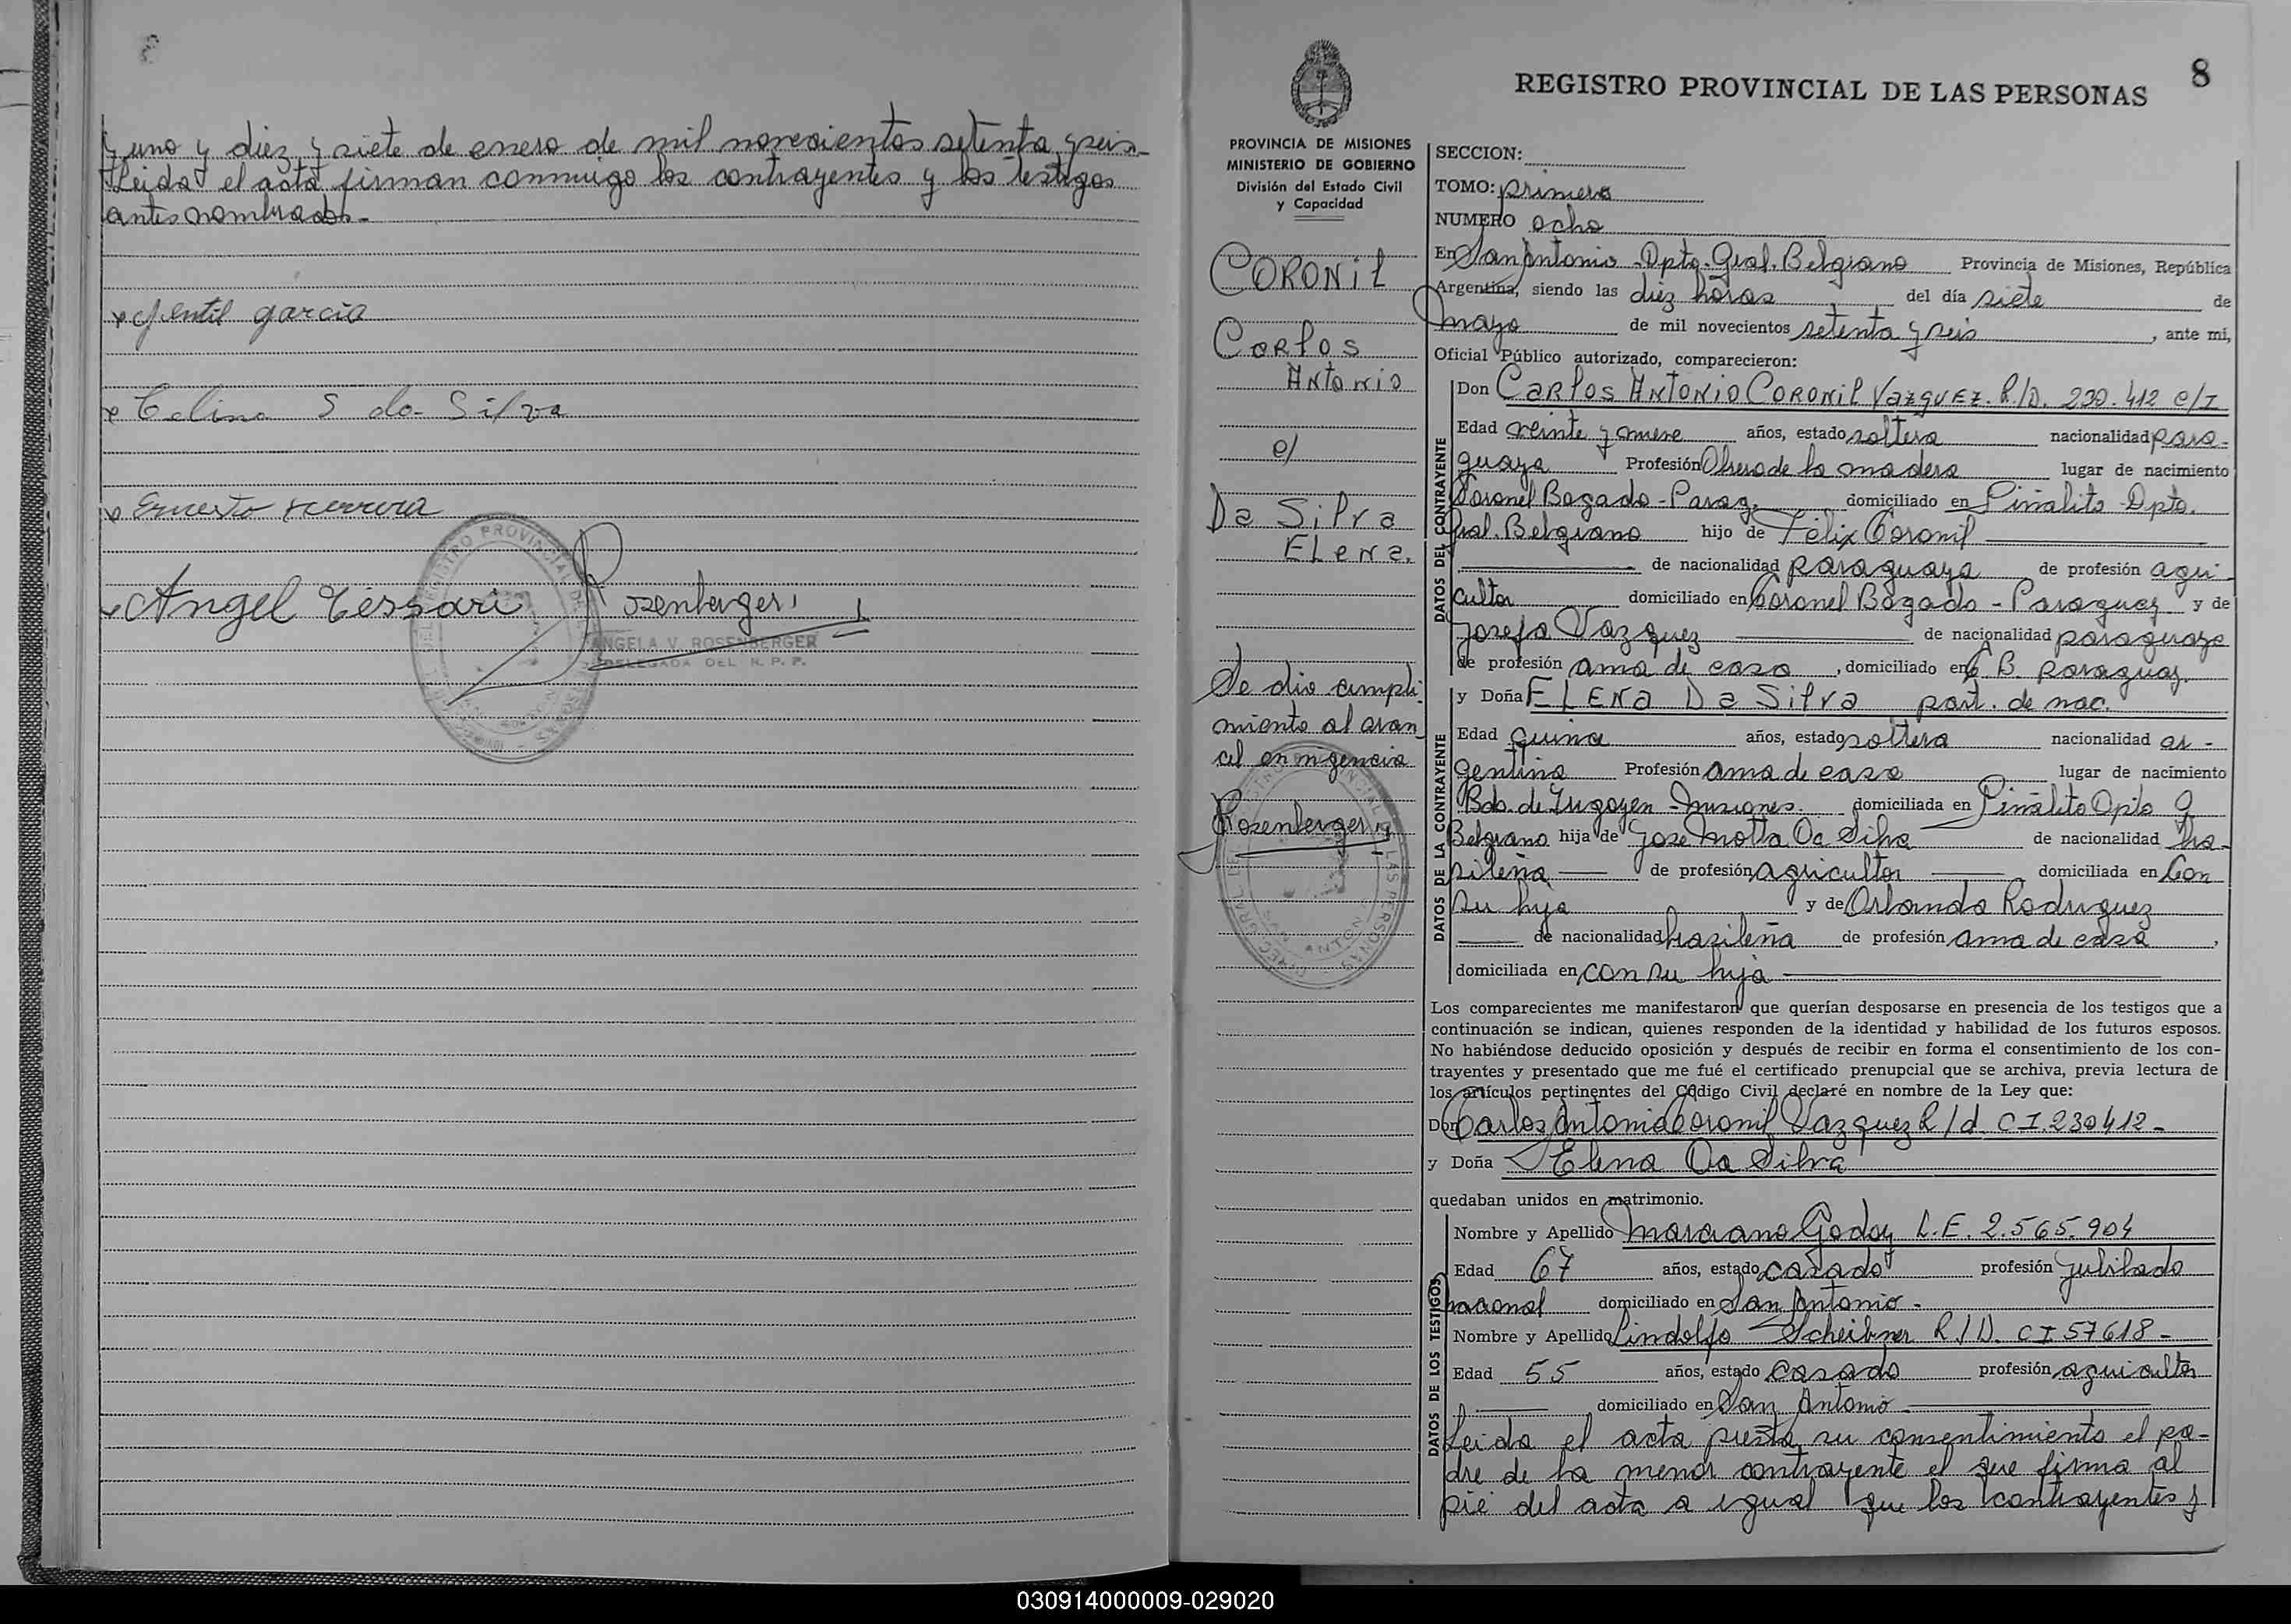 y uno y diez y siete de enero de mil novecientos setenta y seis.-
Leida el acta firman conmigo los contrayentes y los testigos
antes nombrados.-
Gentil garcia
Celina S da Silva
Ernesto Herrera
Angel Tessari Rosenberger
ANGELA V. ROSENBERGER
DELEGADA DEL R. P. P.
8
REGISTRO PROVINCIAL DE LAS PERSONAS
PROVINCIA DE MISIONES
MINISTERIO DE GOBIERNO
División del Estado Civil
y Capacidad
CORONIL
Carlos
Antonio
c/
Da Silva
Elena.
Se dio cumpli-
miento al aran
cel en vigencia
Rosenberger
SECCION:
TOMO: primero
NUMERO ocho
En San Antonio - Dpto. Gral. Belgrano Provincia de Misiones, República
Argentina, siendo las diez horas del día siete de
mayo de mil novecientos setenta y seis, ante mí,
Oficial Público autorizado, comparecieron:
DATOS DEL CONTRAYENTE
Don Carlos Antonio Coronil Vazquez. R/D. 230.412 C/I
Edad veinte y nueve años, estado soltero nacionalidad para-
guaya Profesión Obrero de la madera lugar de nacimiento
Coronel Bogado - Parag. domiciliado en Piñalito - Dpto.
Gral. Belgrano hijo de Félix Coronil
de nacionalidad paraguaya de profesión agri
cultor domiciliado en Coronel Bogado - Paraguay y de
Josefa Vazquez de nacionalidad paraguaya
de profesión ama de casa, domiciliado en C B. Paraguay.
DATOS DE LA CONTRAYENTE
y Doña Elena Da Silva part. de nac.
Edad quince años, estado soltera nacionalidad ar-
gentina Profesión ama de casa lugar de nacimiento
Bdo. de Irigoyen - Misiones. domiciliada en Piñalito Dpto G
Belgrano hija de Jose Motta Da Silva de nacionalidad bra-
sileña de profesión agricultor domiciliada en Con
su hija y de Orlanda Rodriguez
de nacionalidad brasileña de profesión ama de casa,
domiciliada en con su hija
Los comparecientes me manifestaron que querían desposarse en presencia de los testigos que a
continuación se indican, quienes responden de la identidad y habilidad de los futuros esposos.
No habiéndose deducido oposición y después de recibir en forma el consentimiento de los con-
trayentes y presentado que me fué el certificado prenupcial que se archiva, previa lectura de
los artículos pertinentes del Código Civil declaré en nombre de la Ley que:
Don Carlos Antonio Coronil Vazquez R/d. CI. 230412-
y Doña Elena Da Silva
quedaban unidos en matrimonio.
DATOS DE LOS TESTIGOS
Nombre y Apellido Marciano Godoy L.E. 2.565.904
Edad 67 años, estado casado profesión jubilado
nacional domiciliado en San Antonio.
Nombre y Apellido Lindolfo Scheibner R/D. CI 57618-
Edad 55 años, estado casado profesión agricultor
domiciliado en San Antonio
Leida el acta presta su consentimiento el pa-
dre de la menor contrayente el que firma al
pié del acta a igual que los contrayentes y
030914000009-029020